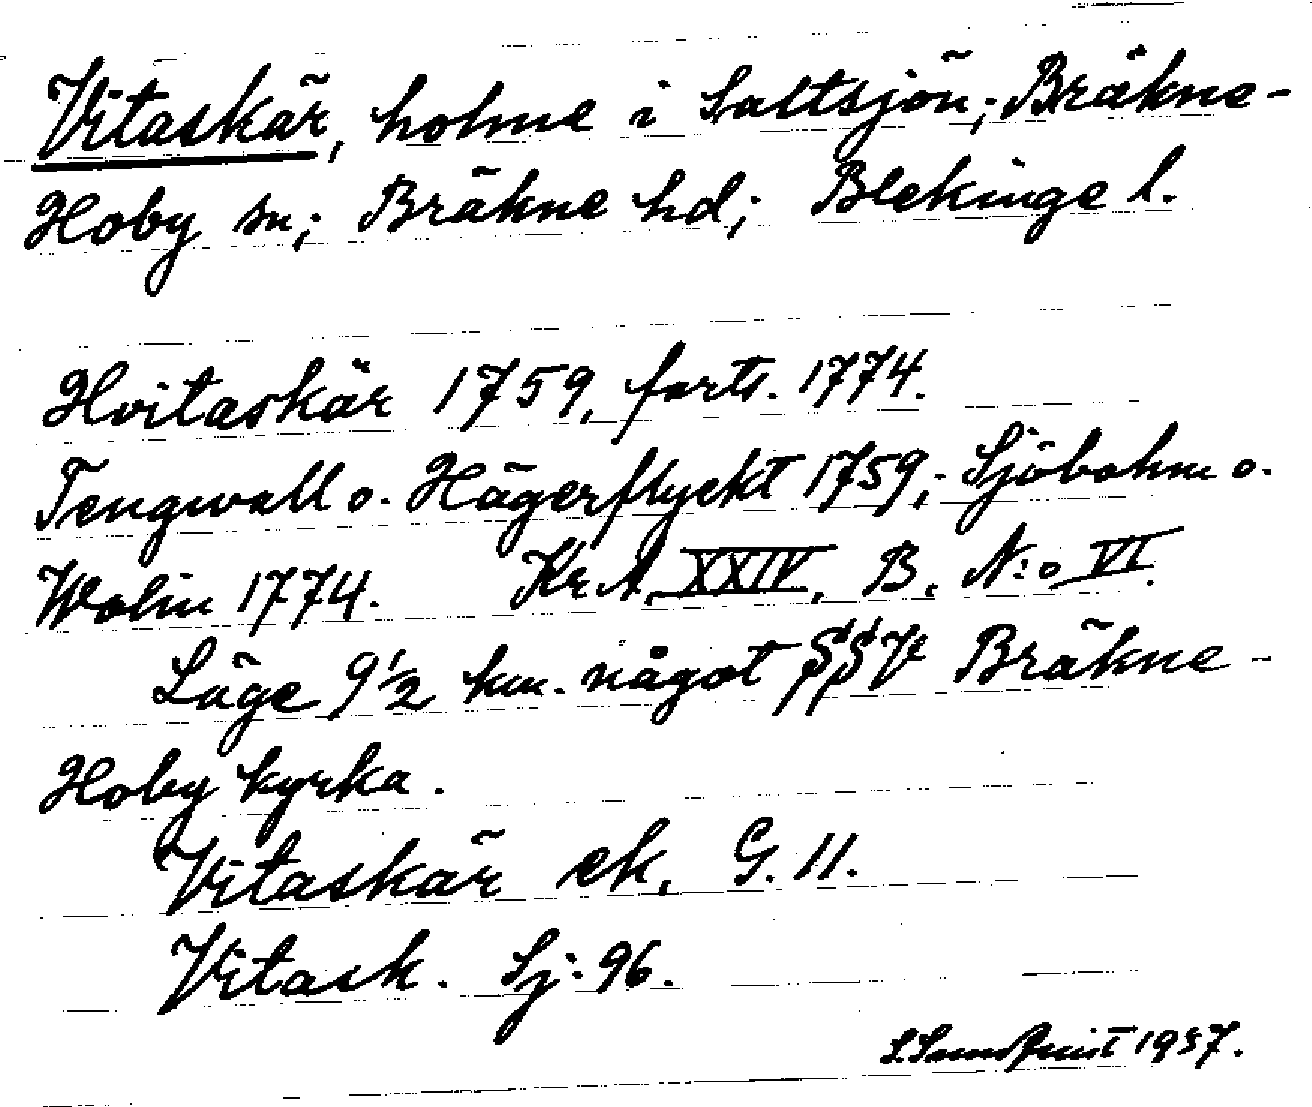 Vitaskär, holme i Saltsjön; Bräkne-
Hoby sn; Bräkne hd; Blekinge l.
Hvitaskär 1759, forts. 1774.
Tengwall o. Hägerflyckt 1759; Sjöbohm o.
Wolin 1774. Kr.A. XXIV, B, N:o VI.
Läge 9 1/2 km. något SSV Bräkne-
Hoby kyrka.
Vitaskär ek, G. 11.
Vitask. Sj: 96.
S. Sundquist 1937.